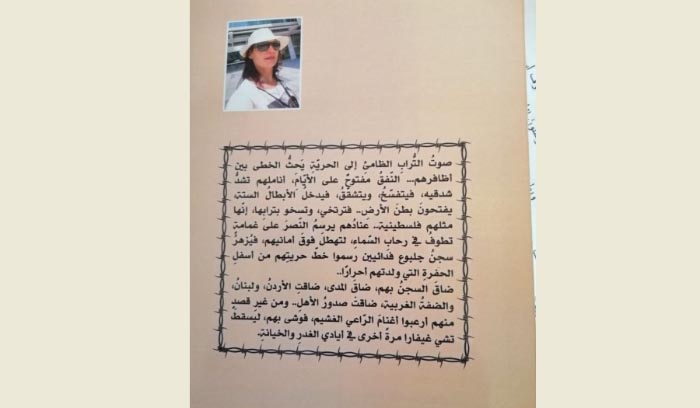 صوتُ التُّرابِ الظامئِ إلى الحريّةِ يَحثُّ الخطى بين
أظافرهم... النّفقُ مَفتوحٌ على الأيّامِ، أناملهم تشدُّ
شدقيه، فيتفسّخُ، ويتشقّقُ، فيدخلُ الأبطالُ الستة،
يفتحونَ بطنَ الأرضِ.. فترتخي، وتسخو بترابها، إنّها
مثلهم فلسطينية.. عنادُهم يرسمُ النّصرَ على غمامةٍ
تطوفُ في رحابِ السّماءِ، لتهطلَ فوقَ أمانيهم، فيُزهرُ
سجنُ جلبوع فدائيين رسموا خطّ حريتِهم من أسفلِ
الحفرةِ التي ولدتهم أحرارًا..
ضاقَ السجنُ بهم، ضاق المدى، ضاقتِ الأردنُ، ولبنانُ،
والضفةُ الغربية، ضاقتْ صدورُ الأهل.. ومن غيرِ قصدٍ
منهم أرعبوا أغنامَ الرّاعي الغشيم، فوشى بهم، ليسقطَ
تشي غيفارا مرةً أخرى في أيادي الغدرِ والخيانةِ.